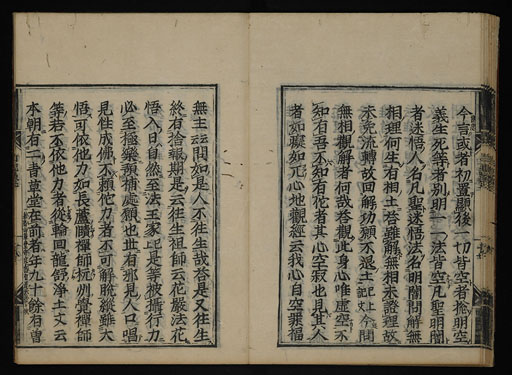 今言或者初置顯後一切皆空者捴明空
義生死等者別明一一法皆空凡聖明闇
者迷悟人名凡聖迷悟法名明闇問解無
相理何生有相土答雖解無相未證理故
未免流轉故回解功願不退土已上今問
無相觀解者何哉答觀此身心唯虛空不
知有吾不知有佗者其心空寂也見其人
者如 如 心地觀經云我心自空罪福
無主云云問如是人不往生哉答是又往生
終有答報期是云往生祖師云花嚴法花
悟入日自然至法王家已是等被攝行力
必至極樂預稱處願也世有那見人口唱
見性成佛不願佗力者不可解脫縱雖大
悟可依他力如長蘆賾禪師杭州貴禪師
等若不依他力者從輪回龍舒淨土文云
本朝有二書草堂在前者年九十餘有曽